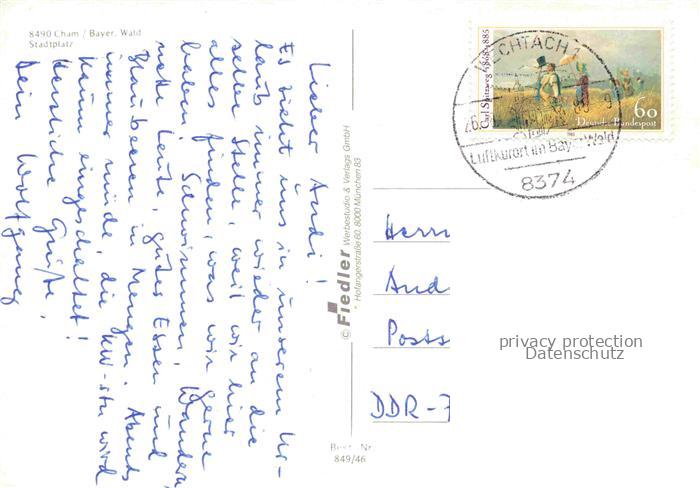 8490 Cham / Bayer. Wald
Stadtplatz
Lieber Andi!
Es zieht uns in unserem Ur-
laub immer wieder an die
selbe Stelle, weil wir hier
alles finden, was wir gerne
haben. Schwimmen, Wandern,
nette Leute, gutes Essen und
Blaubeeren in Mengen. Abends
immer müde, die KW-stn wird
kaum eingeschaltet!
Herzliche Grüße,
Dein Wolfgang
© Fiedler Werbestudio & Verlags GmbH
Hofangerstraße 60, 8000 München 83
Best.-Nr.
849/46
Carl Spitzweg 1808-1885
60
Deutsche Bundespost
VIECHTACH 1
Luftkurort im Bayer. Wald
8374
Herrn
And
Posts
DDR-7
privacy protection
Datenschutz